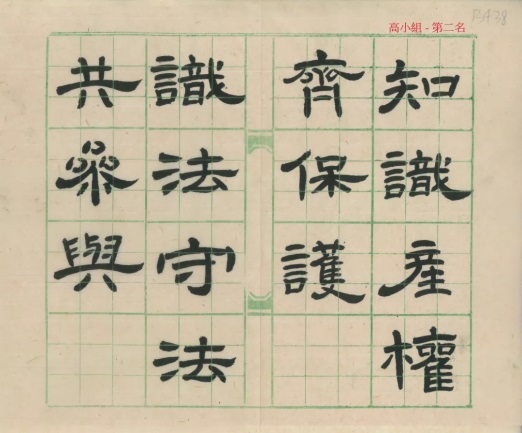 高小組 - 第二名
BA38
知識產權
齊保護
識法守法
共參與